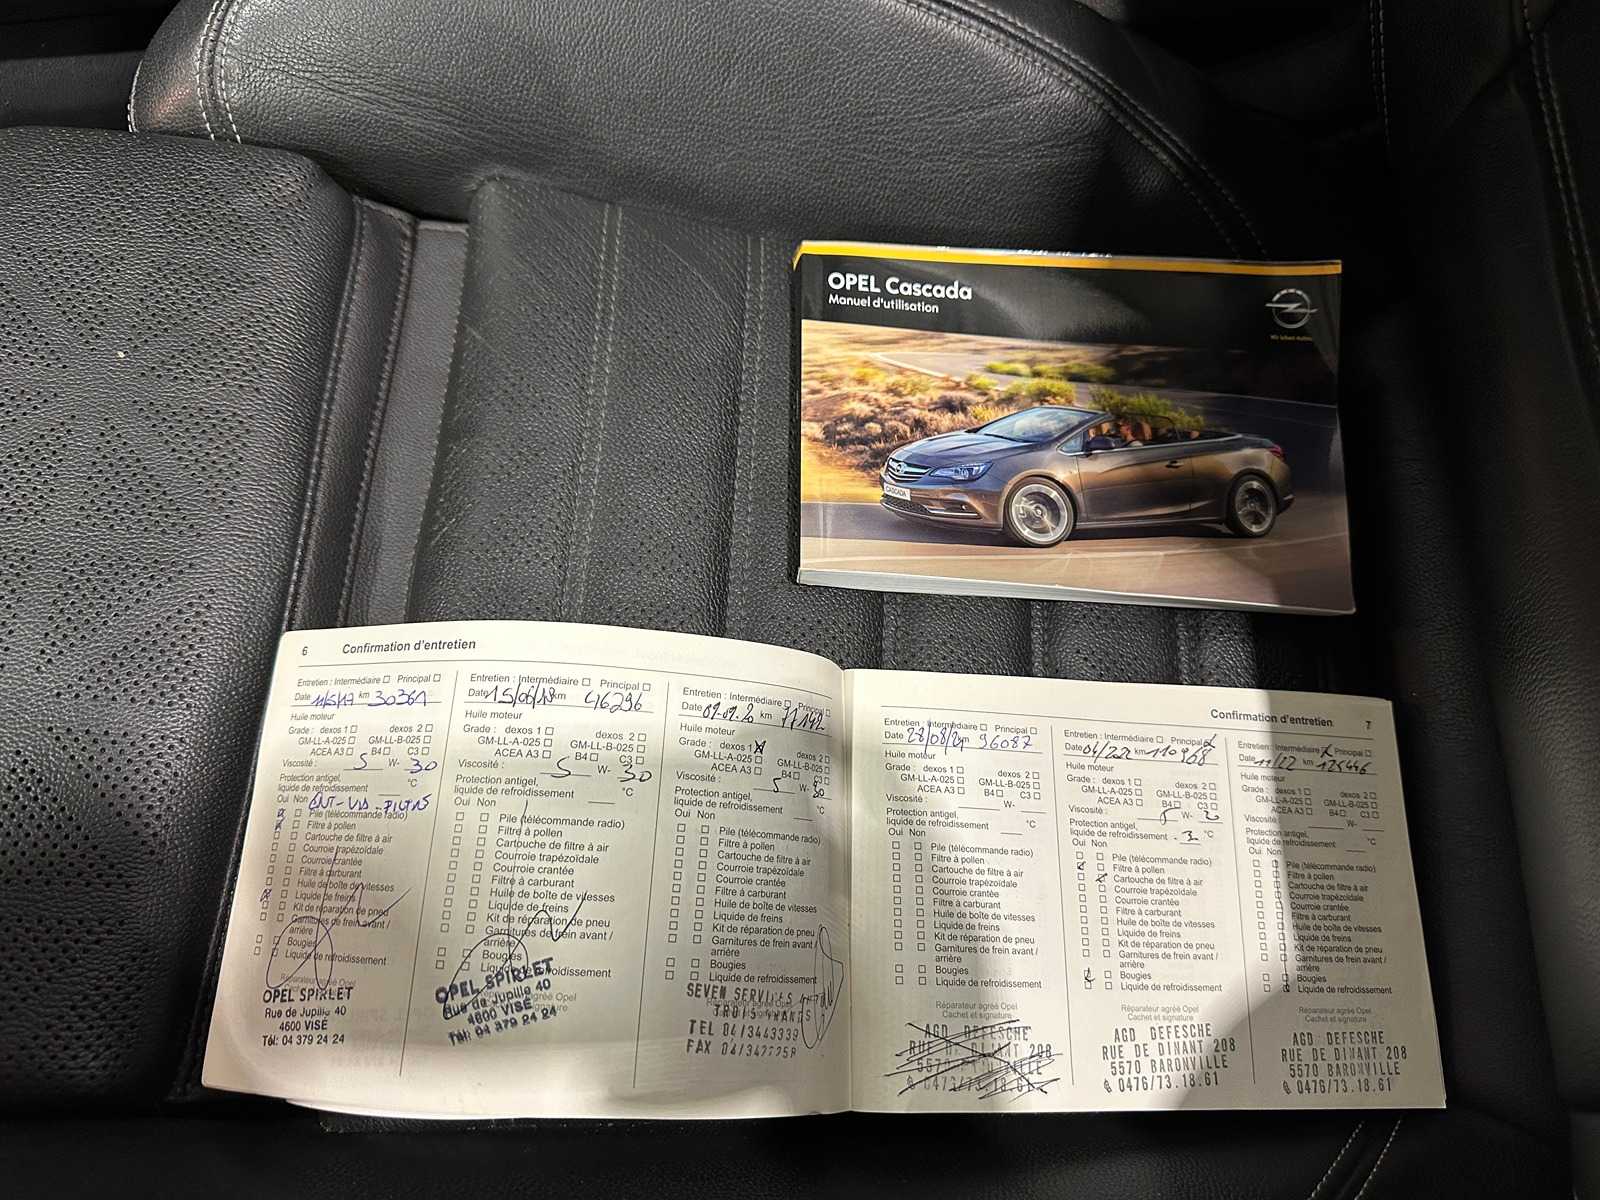 OPEL Cascada
Manuel d'utilisation
CASCADA
6 Confirmation d'entretien
Entretien : Intermédiaire Principal
Date 11/5/17 km 30361
Huile moteur
Grade : dexos 1 dexos 2
GM-LL-A-025 GM-LL-B-025
ACEA A3 B4 C3
Viscosité : 5 W- 30
Protection antigel,
liquide de refroidissement °C
Oui Non
Pile (télécommande radio)
Filtre à pollen
Cartouche de filtre à air
Courroie trapézoïdale
Courroie crantée
Filtre à carburant
Huile de boîte de vitesses
Liquide de freins
Kit de réparation de pneu
Garnitures de frein avant /
arrière
Bougies
Liquide de refroidissement
Réparateur agréé Opel
Cachet et signature
OPEL SPIRLET
Rue de Jupille 40
4600 VISÉ
Tél: 04 379 24 24
Entretien : Intermédiaire Principal
Date 15/06/18 km 46296
Huile moteur
Grade : dexos 1 dexos 2
GM-LL-A-025 GM-LL-B-025
ACEA A3 B4 C3
Viscosité : 5 W- 30
Protection antigel,
liquide de refroidissement °C
Oui Non
Pile (télécommande radio)
Filtre à pollen
Cartouche de filtre à air
Courroie trapézoïdale
Courroie crantée
Filtre à carburant
Huile de boîte de vitesses
Liquide de freins
Kit de réparation de pneu
Garnitures de frein avant /
arrière
Bougies
Liquide de refroidissement
OPEL SPIRLET
Rue de Jupille 40
4600 VISÉ
Tél: 04 379 24 24
Entretien : Intermédiaire Principal
Date 09.09.20 km 77142
Huile moteur
Grade : dexos 1 dexos 2
GM-LL-A-025 GM-LL-B-025
ACEA A3 B4 C3
Viscosité : 5 W- 30
Protection antigel,
liquide de refroidissement °C
Oui Non
Pile (télécommande radio)
Filtre à pollen
Cartouche de filtre à air
Courroie trapézoïdale
Courroie crantée
Filtre à carburant
Huile de boîte de vitesses
Liquide de freins
Kit de réparation de pneu
Garnitures de frein avant /
arrière
Bougies
Liquide de refroidissement
Réparateur agréé Opel
SEVEN SERVICES
TEL 04/3443339
FAX
Confirmation d'entretien 7
Entretien : Intermédiaire Principal
Date 28/08/21 km 96087
Huile moteur
Grade : dexos 1 dexos 2
GM-LL-A-025 GM-LL-B-025
ACEA A3 B4 C3
Viscosité : W-
Protection antigel,
liquide de refroidissement °C
Oui Non
Pile (télécommande radio)
Filtre à pollen
Cartouche de filtre à air
Courroie trapézoïdale
Courroie crantée
Filtre à carburant
Huile de boîte de vitesses
Liquide de freins
Kit de réparation de pneu
Garnitures de frein avant /
arrière
Bougies
Liquide de refroidissement
Réparateur agréé Opel
Cachet et signature
AGD DEFESCHE
RUE DE DINANT 208
5570 BARONVILLE
0476/73.18.61
Entretien : Intermédiaire Principal
Date 04/22 km 110968
Huile moteur
Grade : dexos 1 dexos 2
GM-LL-A-025 GM-LL-B-025
ACEA A3 B4 C3
Viscosité : W-
Protection antigel,
liquide de refroidissement °C
Oui Non
Pile (télécommande radio)
Filtre à pollen
Cartouche de filtre à air
Courroie trapézoïdale
Courroie crantée
Filtre à carburant
Huile de boîte de vitesses
Liquide de freins
Kit de réparation de pneu
Garnitures de frein avant /
arrière
Bougies
Liquide de refroidissement
Réparateur agréé Opel
Cachet et signature
AGD DEFESCHE
RUE DE DINANT 208
5570 BARONVILLE
0476/73.18.61
Entretien : Intermédiaire Principal
Date 11/22 km 125446
Huile moteur
Grade : dexos 1 dexos 2
GM-LL-A-025 GM-LL-B-025
ACEA A3 B4 C3
Viscosité : W-
Protection antigel,
liquide de refroidissement °C
Oui Non
Pile (télécommande radio)
Filtre à pollen
Cartouche de filtre à air
Courroie trapézoïdale
Courroie crantée
Filtre à carburant
Huile de boîte de vitesses
Liquide de freins
Kit de réparation de pneu
Garnitures de frein avant /
arrière
Bougies
Liquide de refroidissement
Réparateur agréé Opel
Cachet et signature
AGD DEFESCHE
RUE DE DINANT 208
5570 BARONVILLE
0476/73.18.61